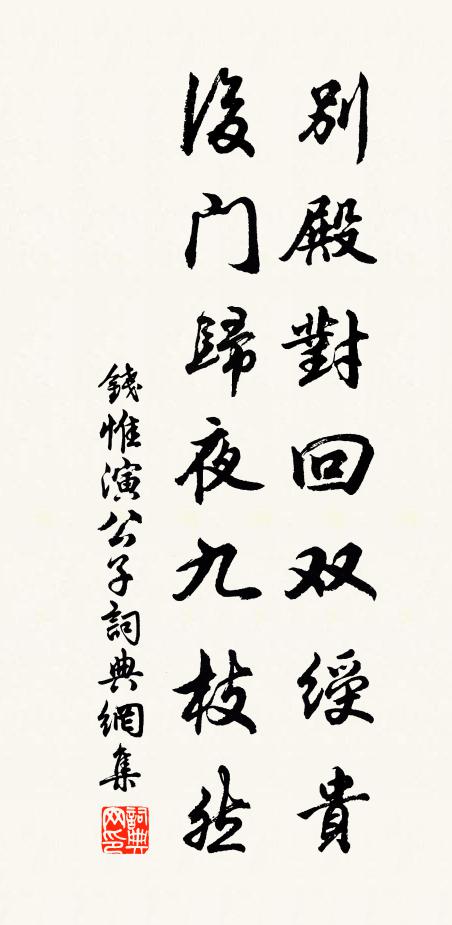 別殿對回双綬貴
後門歸夜九枝然
錢惟演公子詞典網集
詞典网印